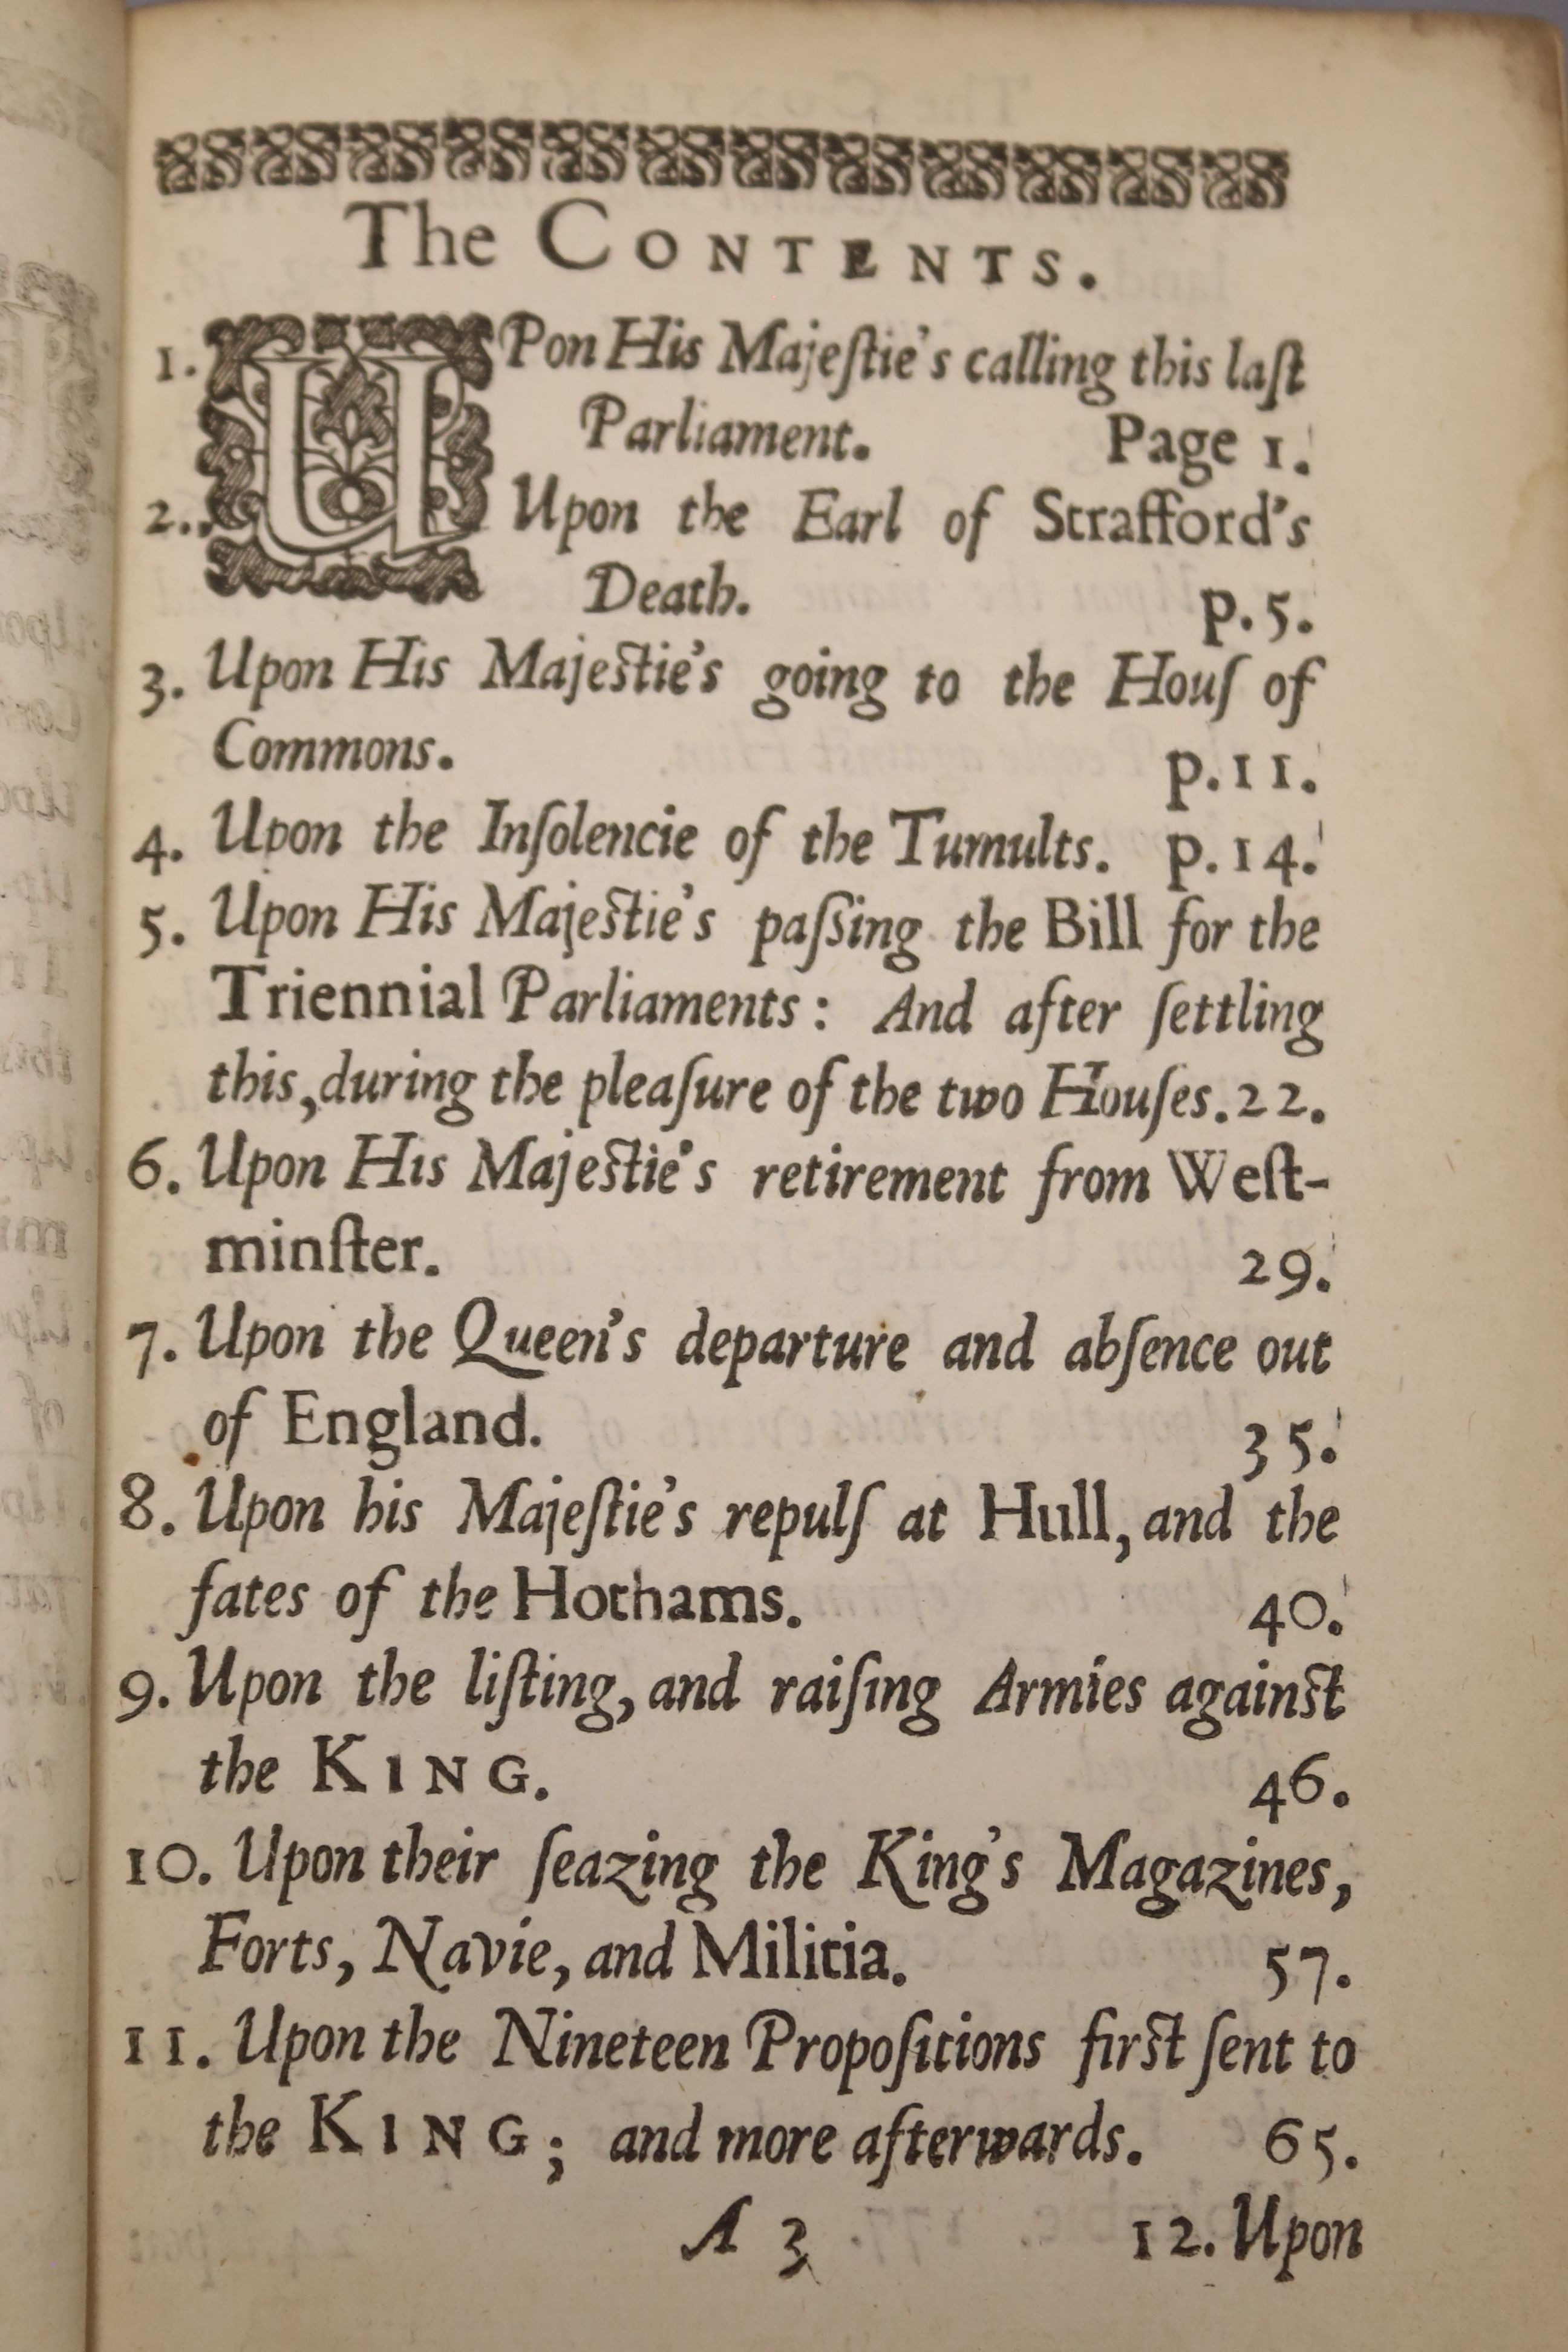 The CONTENTS.
1. UPon His Majeſtie's calling this laſt
Parliament. Page 1.
2. Upon the Earl of Strafford's
Death. p. 5.
3. Upon His Majeſtie's going to the Houſ of
Commons. p. 11.
4. Upon the Inſolencie of the Tumults. p. 14.
5. Upon His Majeſtie's paſsing the Bill for the
Triennial Parliaments: And after ſettling
this, during the pleaſure of the two Houſes. 22.
6. Upon His Majeſtie's retirement from Weſt-
minſter. 29.
7. Upon the Queen's departure and abſence out
of England. 35.
8. Upon his Majeſtie's repulſ at Hull, and the
fates of the Hothams. 40.
9. Upon the liſting, and raiſing Armies againſt
the KING. 46.
10. Upon their ſeazing the King's Magazines,
Forts, Navie, and Militia. 57.
11. Upon the Nineteen Propoſitions firſt ſent to
the KING; and more afterwards. 65.
A 3 12. Upon